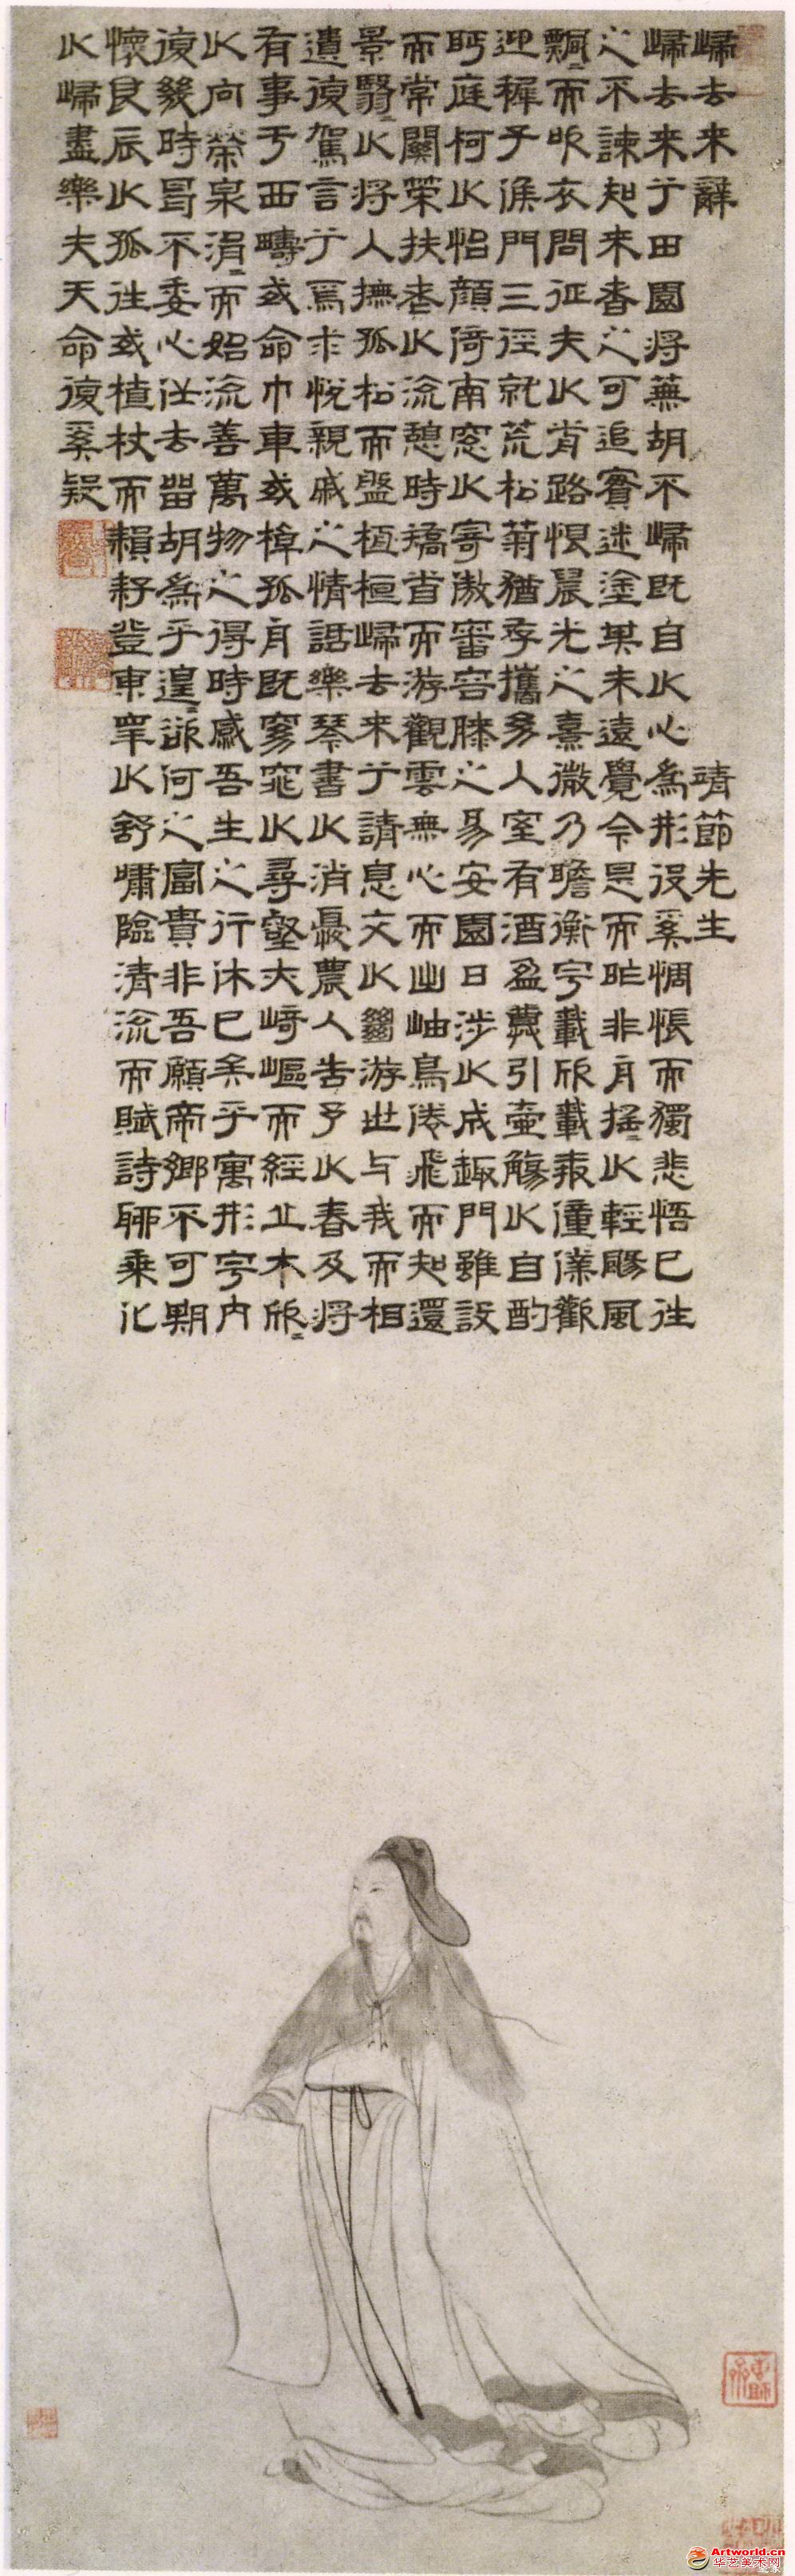 歸去来辭 靖節先生
歸去来兮田園将蕪胡不歸既自以心為形役奚惆悵而獨悲悟已往
之不諫知来者之可追實迷塗其未遠覺今是而昨非舟摇〻以輕颺風
飄〻而吹衣問征夫以前路恨晨光之熹微乃瞻衡宇載欣載奔僮僕歡
迎稚子候門三徑就荒松菊猶存攜幼入室有酒盈樽引壺觴以自酌
眄庭柯以怡顏倚南窓以寄傲審容膝之易安園日涉以成趣門雖設
而常關策扶老以流憩時矯首而游觀雲無心而出岫鳥倦飛而知還
景翳〻以将入撫孤松而盤桓桓歸去来兮請息交以絕游世与我而相
遺復駕言兮焉求悅親戚之情話樂琴書以消憂農人告予以春及将
有事于西疇或命巾車或棹孤舟既窈窕以尋壑亦崎嶇而經丘木欣〻
以向榮泉涓〻而始流善萬物之得時感吾生之行休已矣乎寓形宇内
復幾時曷不委心任去留胡為乎遑〻欲何之富貴非吾願帝鄉不可期
懷良辰以孤往或植杖而耘耔登東皋以舒嘯臨清流而賦詩聊乘化
以歸盡樂夫天命復奚疑
Artworld.cn
华艺美术网